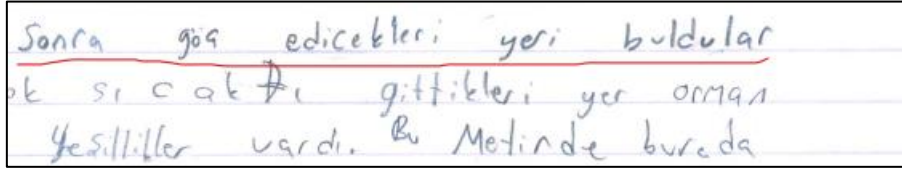 Sonra göç edicekleri yeri buldular
ok sıcaktı gittikleri yer orman
Yesilliller vardı. Bu Metinde burada